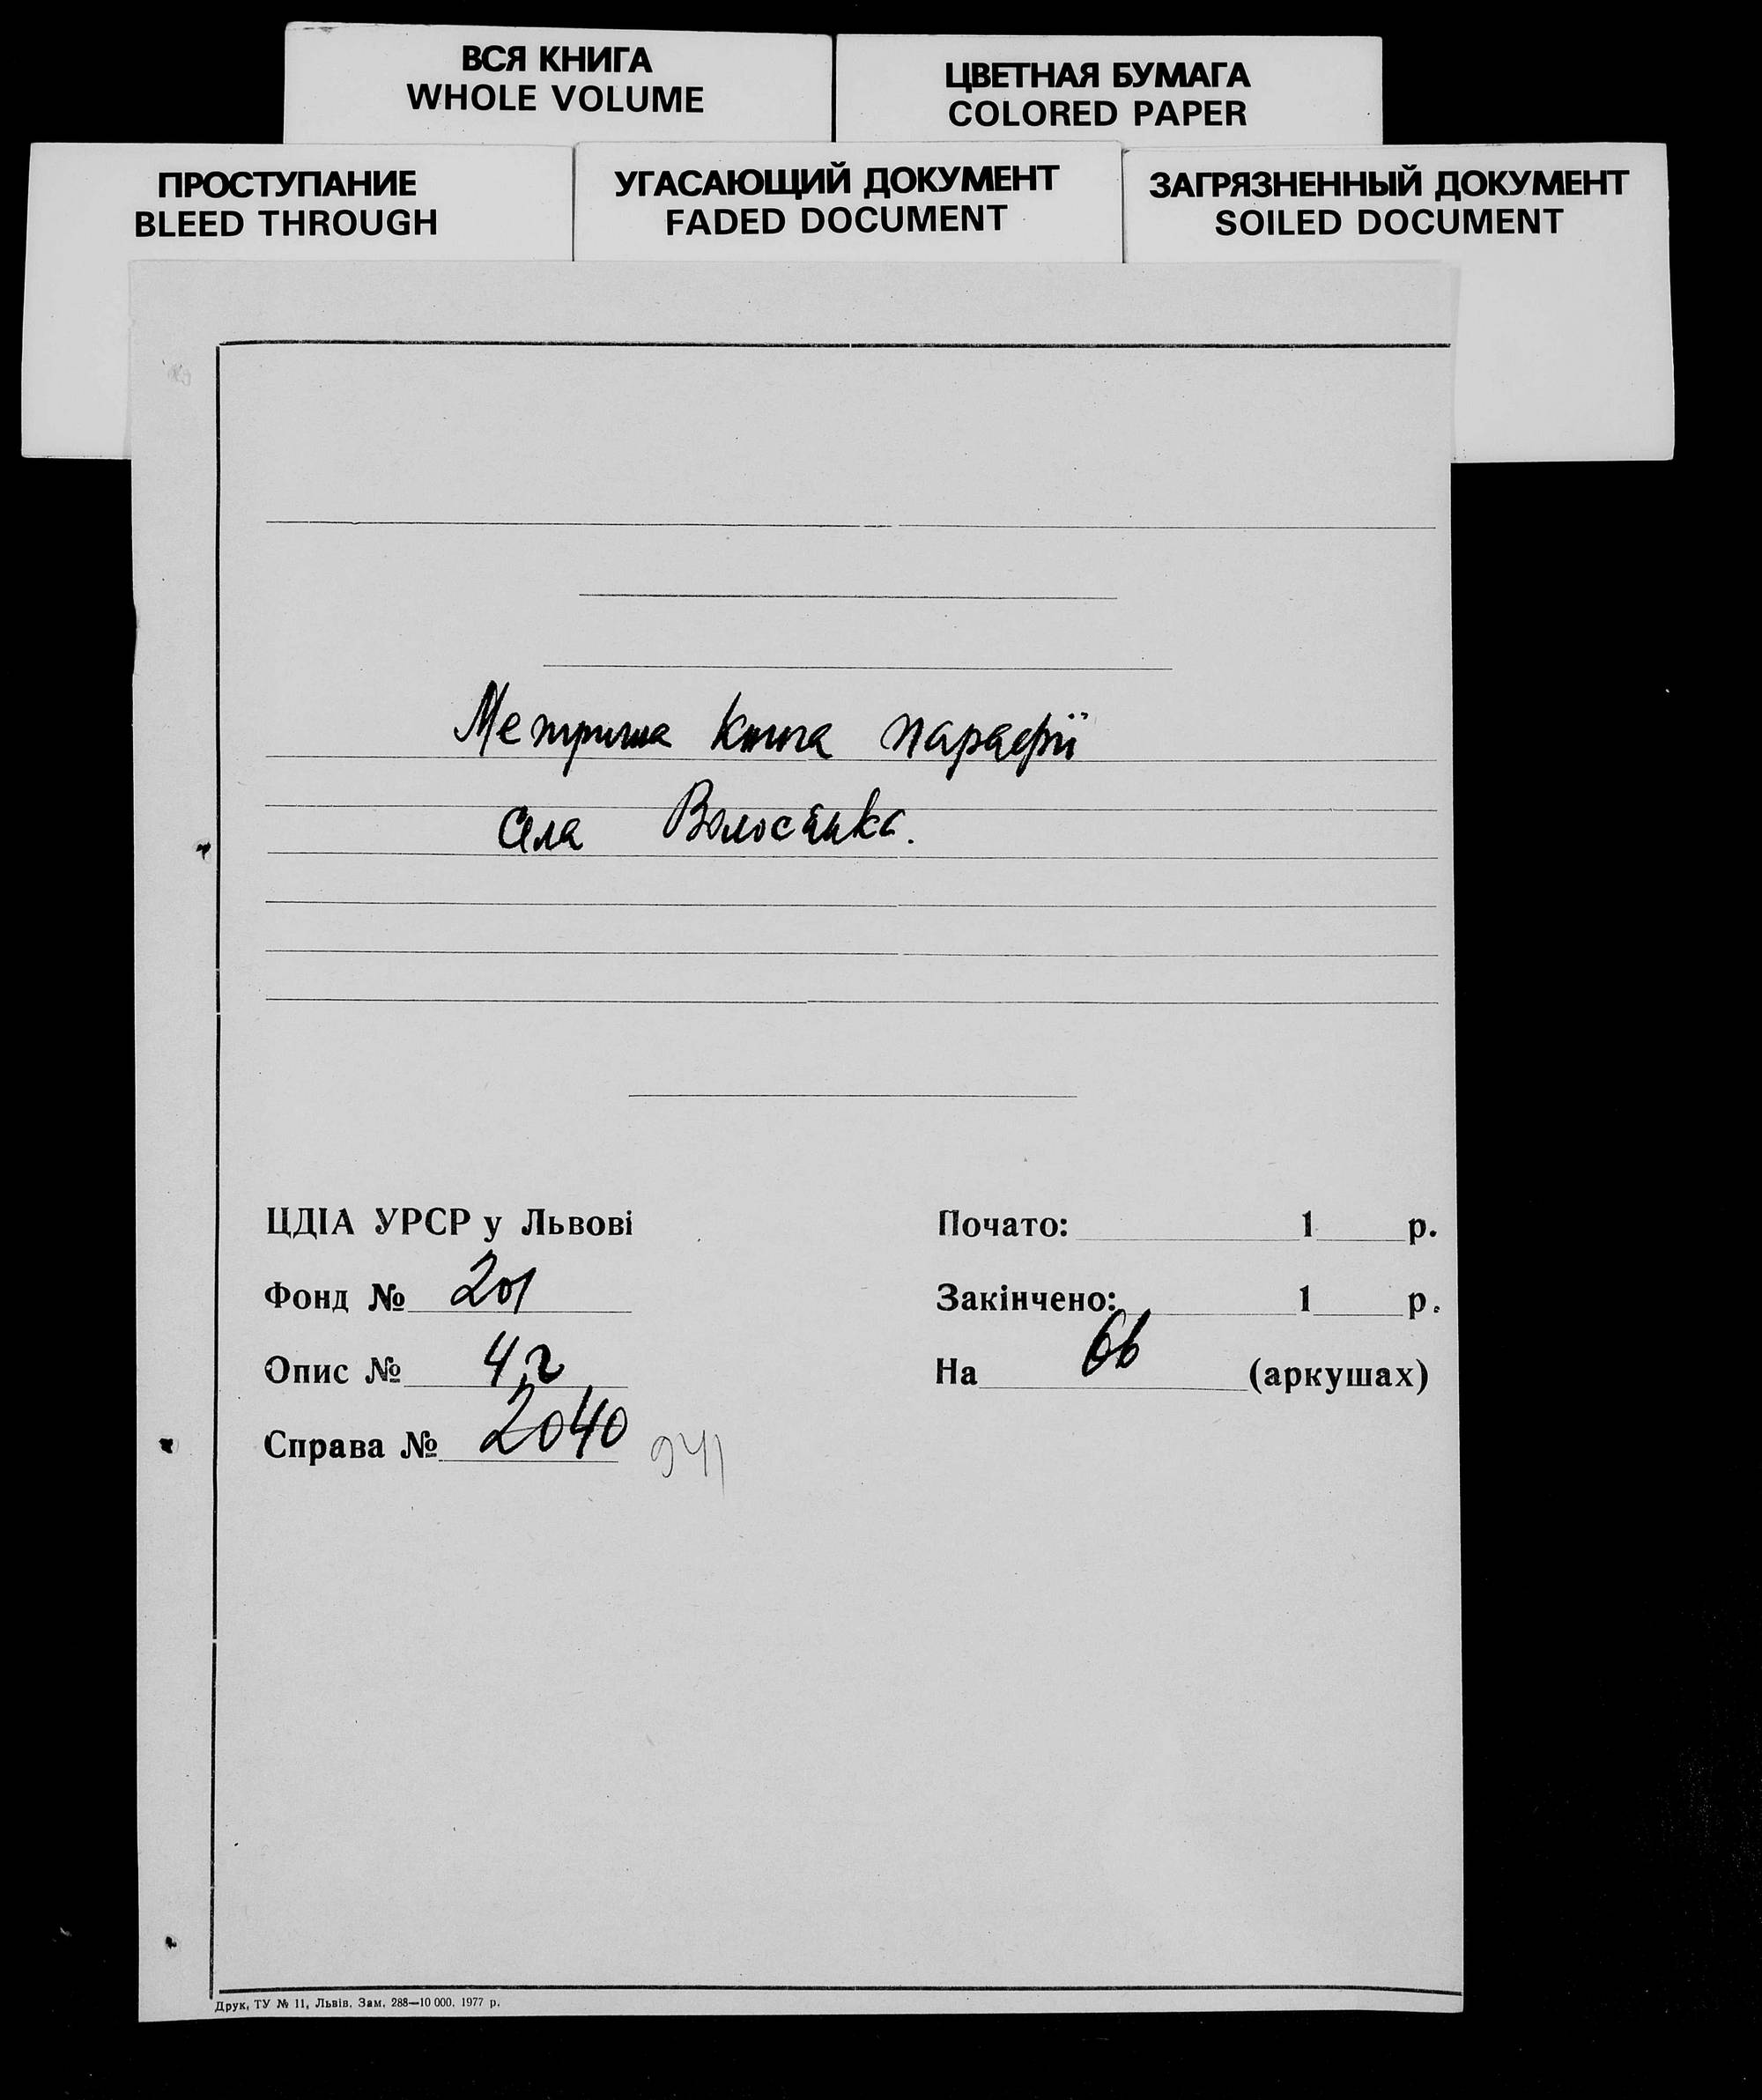 ВСЯ КНИГА
WHOLE VOLUME
ЦВЕТНАЯ БУМАГА
COLORED PAPER
ПРОСТУПАНИЕ
BLEED THROUGH
УГАСАЮЩИЙ ДОКУМЕНТ
FADED DOCUMENT
ЗАГРЯЗНЕННЫЙ ДОКУМЕНТ
SOILED DOCUMENT
Метрична книга парафії
села Волосянка.
ЦДІА УРСР у Львові
Фонд № 201
Опис № 4г
Справа № 2040 941
Почато: 1 р.
Закінчено: 1 р.
На 66 (аркушах)
Друк, ТУ № 11, Львів, Зам. 288—10 000. 1977 р.